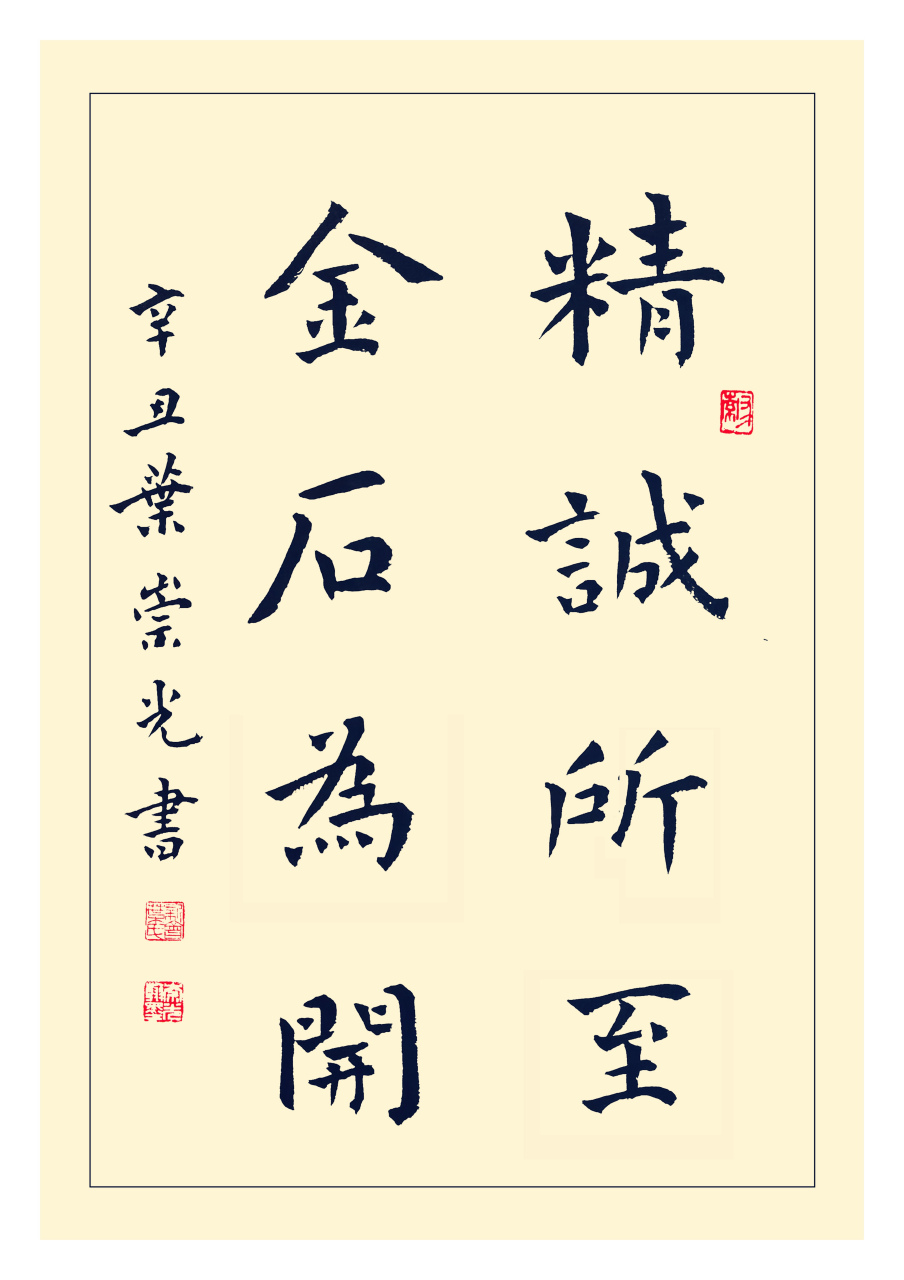 精誠所至
金石為開
辛丑葉崇光書